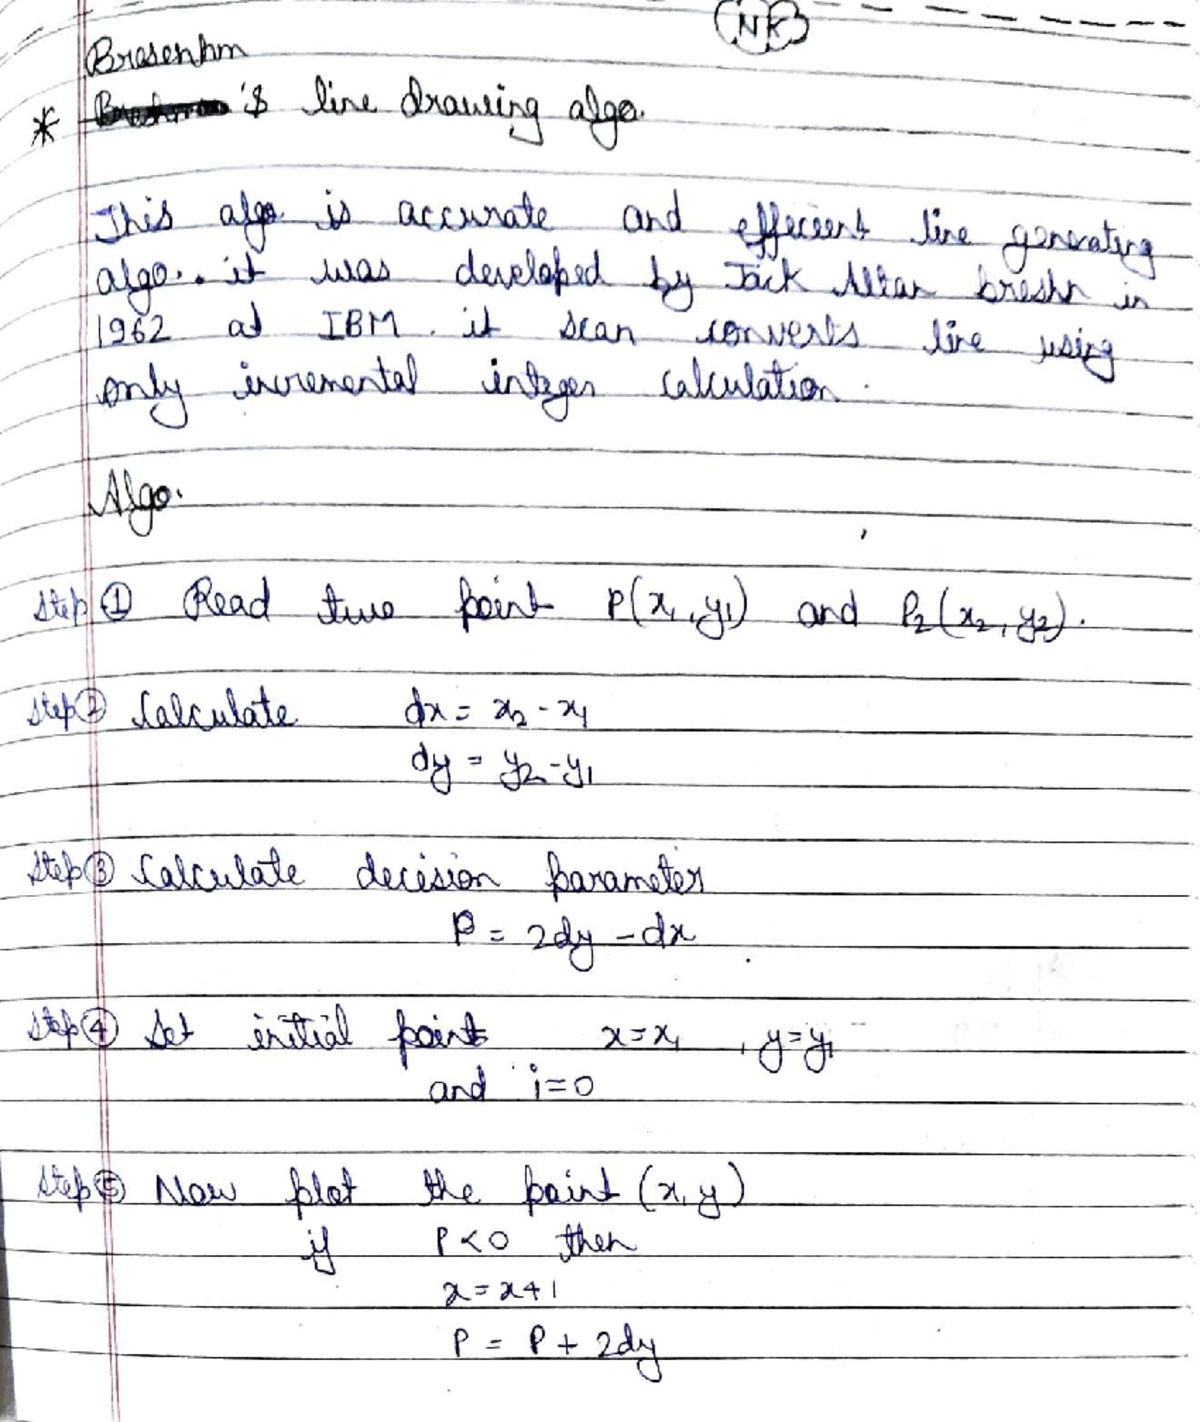 NK
Bresenhm
* 's line drawing algo.
This algo is accurate and effecient line generating
algo.. it was developed by Jack Altan breshn in
1962 at IBM. it scan converts line using
only incremental integer calculation.
Algo.
Step ① Read two point P(x₁, y₁) and P₂(x₂, y₂).
Step ② Calculate dx = x₂ - x₁
dy = y₂ - y₁
Step ③ Calculate decision parameter
P = 2dy - dx
Step ④ Set initial point x = x₁ , y = y₁
and i = 0
Step ⑤ Now plot the point (x, y)
if P < 0 then
x = x + 1
P = P + 2dy